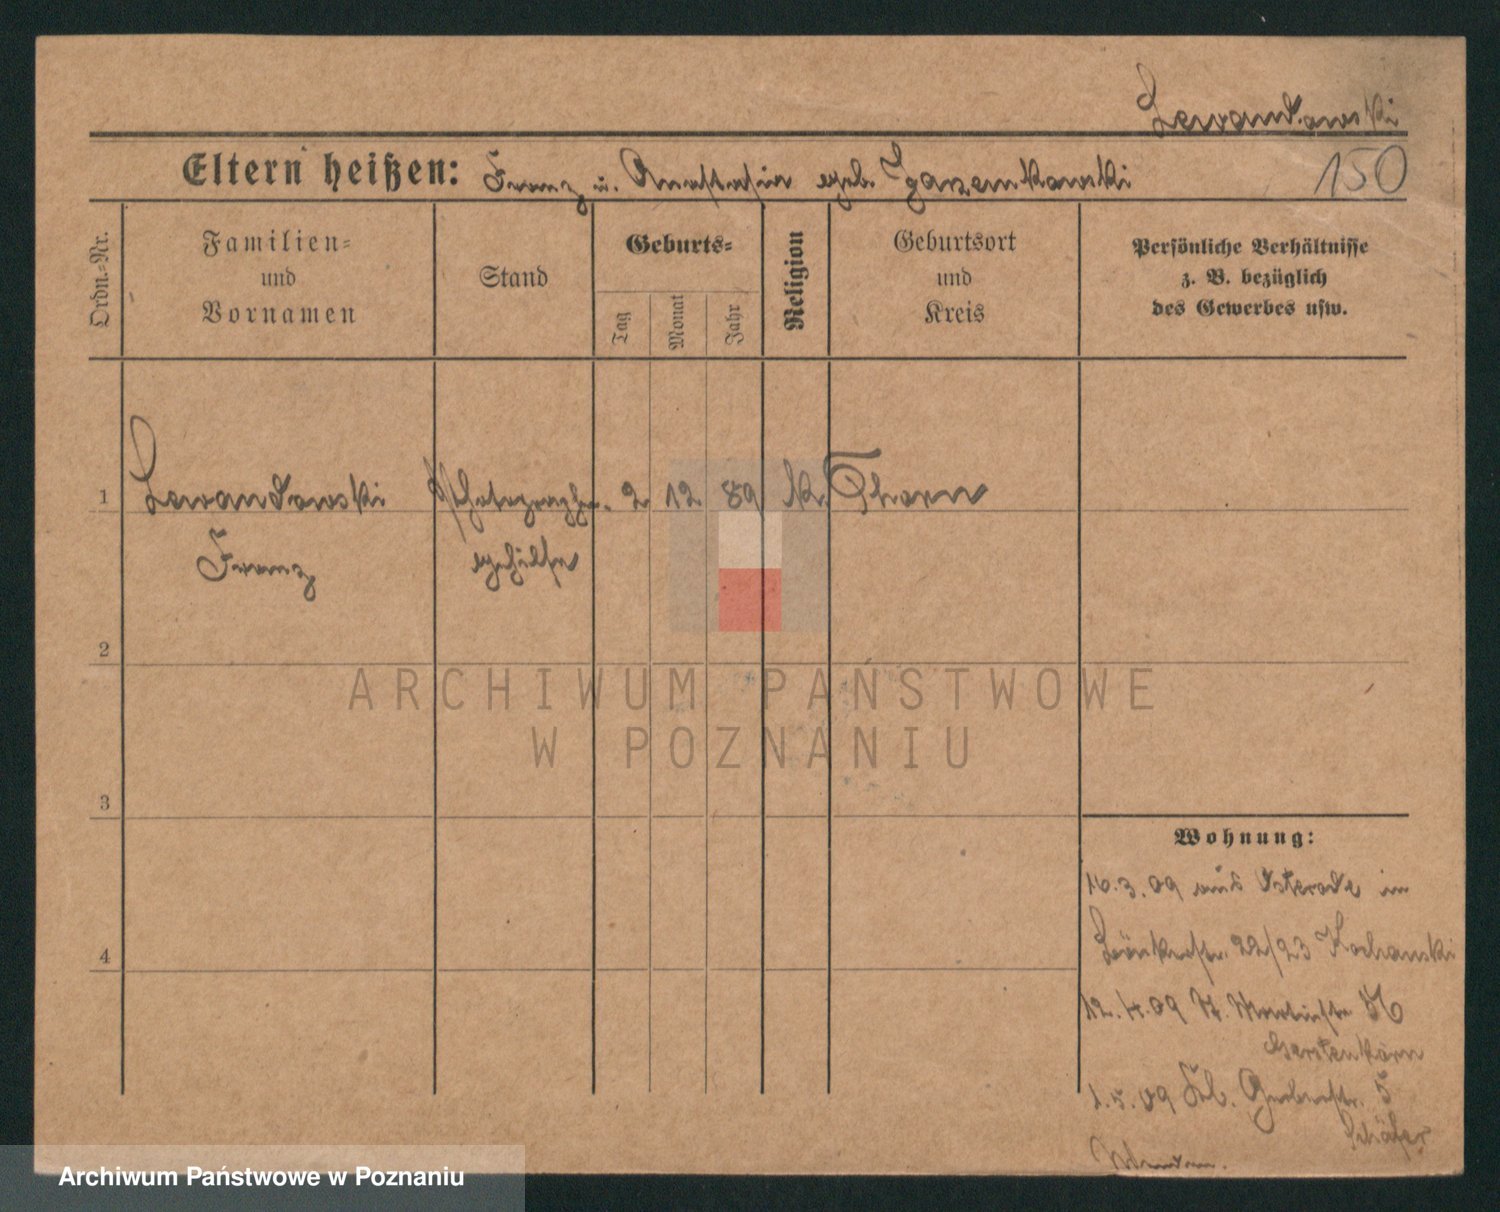 Lewandowski
Eltern heißen: Franz u. Anastasia geb.
150
Ordn.-Nr.
Familien-
und
Vornamen
Stand
Geburts-
Tag
Monat
Jahr
Religion
Geburtsort
und
Kreis
Persönliche Verhältnisse
z. B. bezüglich
des Gewerbes usw.
1 Lewandowski Photograph. 2 12 89 k. Thorn
Franz gehilfe
2
3
4
Wohnung:
16.3.09 aus Osterode in
22/23 Kochanski
12.4.09 St. Martinstr.
Gerstenkorn
1.5.09 5
Schäfer
ARCHIWUM PAŃSTWOWE
W POZNANIU
Archiwum Państwowe w Poznaniu